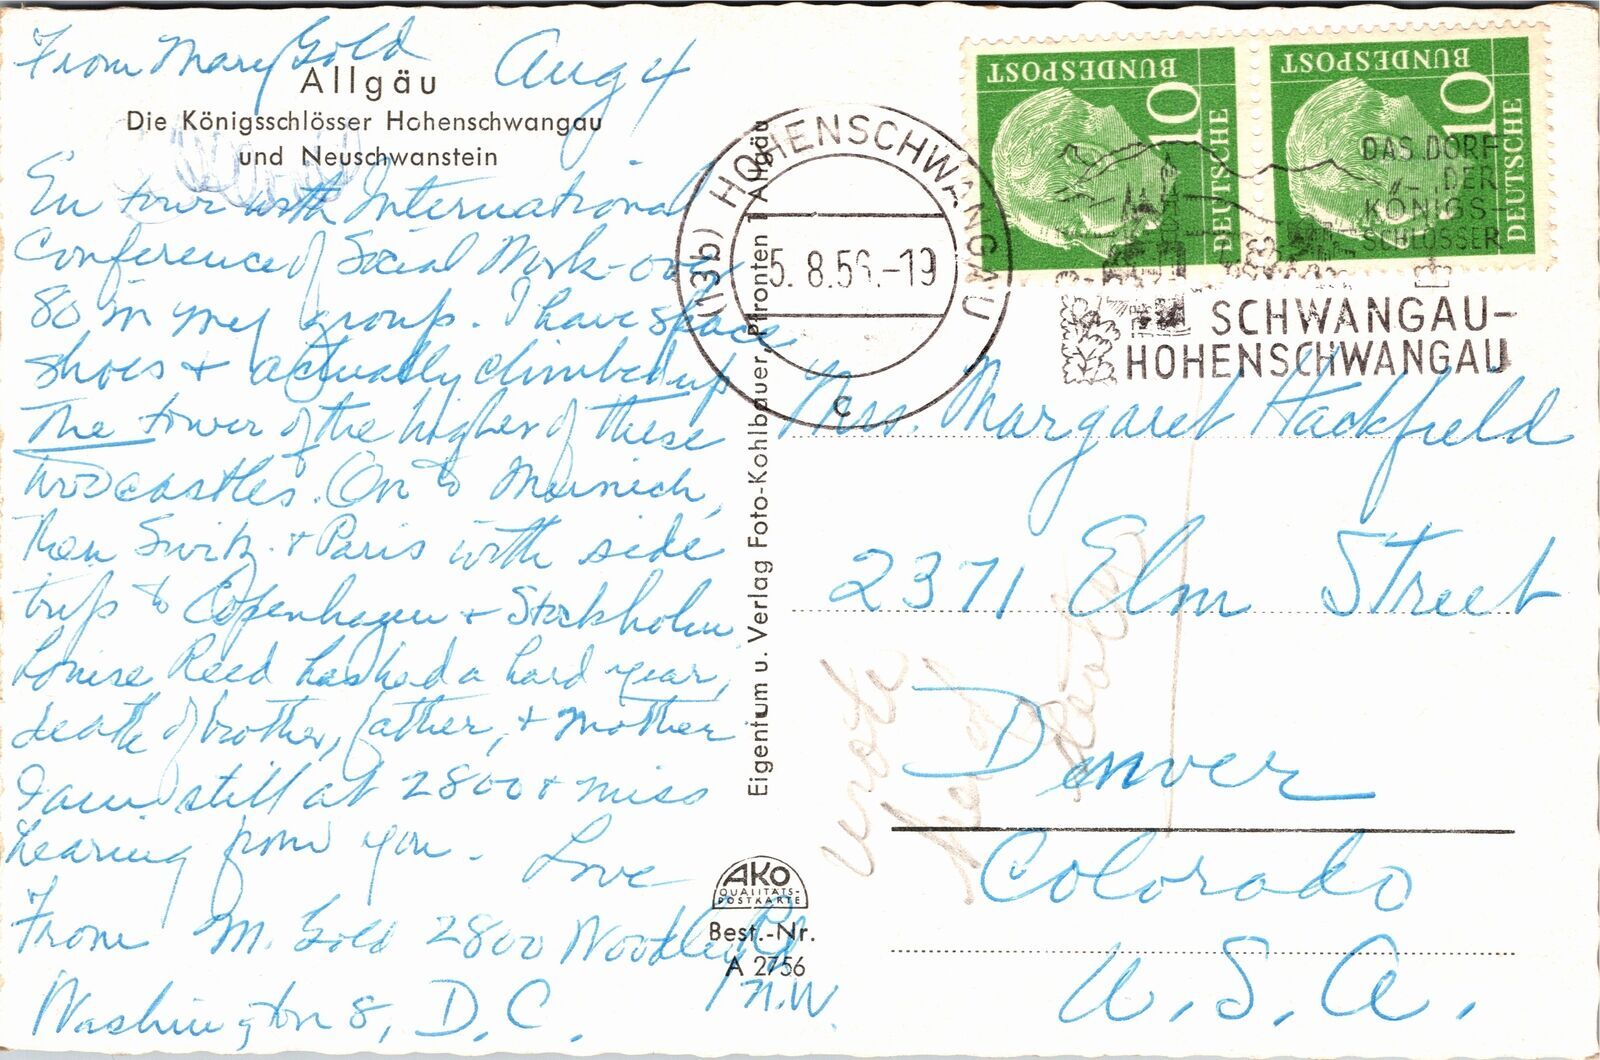 From Mary Gold Aug 4
Allgäu
Die Königsschlösser Hohenschwangau
und Neuschwanstein
En tour with International
Conference of Social Work - over
80 in my group. I have space
shoes + actually climbed up
the tower of the higher of these
two castles. On to Munich,
then Switz. + Paris with side
trip to Copenhagen + Stockholm
Louise Reed has had a hard year,
death of brother, father, + mother
I am still at 2800 + miss
hearing from you. Love
From M. Gold 2800 Woodley Rd
N.W.
Washington 8, D.C.
Eigentum u. Verlag Foto-Kohlbauer, Pfronten 1 Allgäu
AKO
QUALITÄTS-
POSTKARTE
Best.-Nr.
A 2756
(13b) HOHENSCHWANGAU
5.8.56.-19
c
DEUTSCHE
BUNDESPOST
10
DEUTSCHE
BUNDESPOST
10
DAS DORF
DER
KÖNIGS-
SCHLÖSSER
SCHWANGAU-
HOHENSCHWANGAU
Mrs. Margaret Hackfield
2371 Elm Street
Denver
Colorado
U.S.A.
wrote